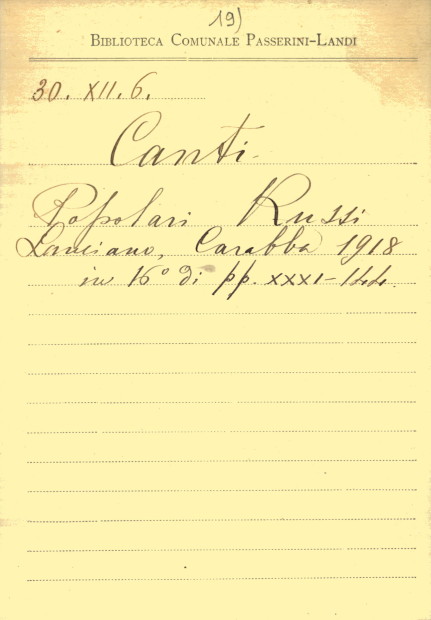 19)
BIBLIOTECA COMUNALE PASSERINI-LANDI
30. XII. 6.
Canti
Popolari Russi
Lanciano, Carabba 1918
in 16° di pp. XXXI-144.